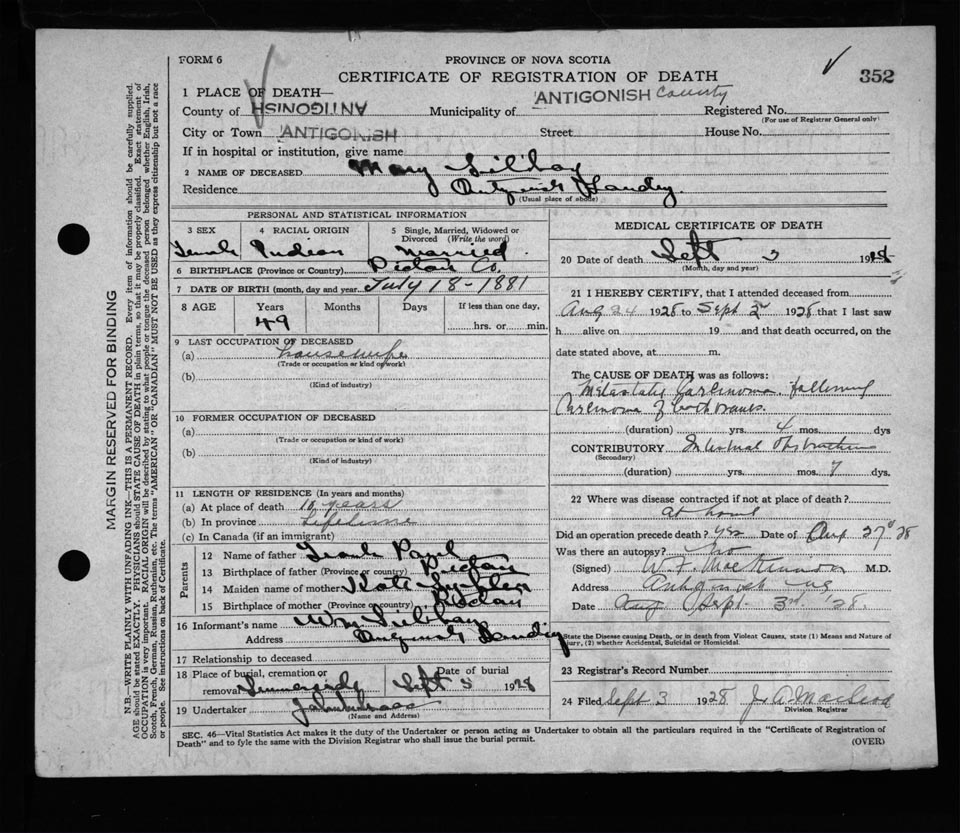 FORM 6
PROVINCE OF NOVA SCOTIA
CERTIFICATE OF REGISTRATION OF DEATH
352
1 PLACE OF DEATH—
County of ANTIGONISH
Municipality of ANTIGONISH County
Registered No.
(For use of Registrar General only)
City or Town ANTIGONISH
Street
House No.
If in hospital or institution, give name
2 NAME OF DECEASED Mary
Residence Landing
(Usual place of abode)
PERSONAL AND STATISTICAL INFORMATION
3 SEX
Female
4 RACIAL ORIGIN
Indian
5 Single, Married, Widowed or Divorced (Write the word)
Married
6 BIRTHPLACE (Province or Country) Pictou Co.
7 DATE OF BIRTH (month, day and year) July 18 - 1881
8 AGE
Years
49
Months
Days
If less than one day,
hrs. or min.
9 LAST OCCUPATION OF DECEASED
(a) housewife
(Trade or occupation or kind of work)
(b)
(Kind of industry)
10 FORMER OCCUPATION OF DECEASED
(a)
(Trade or occupation or kind of work)
(b)
(Kind of industry)
11 LENGTH OF RESIDENCE (In years and months)
(a) At place of death 10 years
(b) In province Lifetime
(c) In Canada (if an immigrant)
Parents
12 Name of father
13 Birthplace of father (Province or country) Pictou
14 Maiden name of mother Kate
15 Birthplace of mother (Province or country) Pictou
16 Informant's name Wm
Address Landing
17 Relationship to deceased
18 Place of burial, cremation or removal Summerside
Date of burial
Sept 3 1928
19 Undertaker
(Name and Address)
MEDICAL CERTIFICATE OF DEATH
20 Date of death Sept 2 1928
(Month, day and year)
21 I HEREBY CERTIFY, that I attended deceased from
Aug 24 1928 to Sept 2 1928 that I last saw
h alive on 19 and that death occurred, on the
date stated above, at m.
The CAUSE OF DEATH was as follows:
Metastatic Carcinoma following
Carcinoma of both ovaries.
(duration) yrs. 4 mos. dys
CONTRIBUTORY Intestinal Obstruction
(Secondary)
(duration) yrs. mos. 7 dys.
22 Where was disease contracted if not at place of death?
at home
Did an operation precede death? yes Date of Aug 27 '28
Was there an autopsy? No
(Signed) W. F. MacKinnon M.D.
Address Antigonish NS
Date Aug Sept. 3rd '28.
State the Disease causing Death, or in death from Violent Causes, state (1) Means and Nature of
Injury, (2) whether Accidental, Suicidal or Homicidal.
23 Registrar's Record Number
24 Filed Sept 3 1928 J. A. MacLeod
Division Registrar
SEC. 46—Vital Statistics Act makes it the duty of the Undertaker or person acting as Undertaker to obtain all the particulars required in the "Certificate of Registration of
Death" and to fyle the same with the Division Registrar who shall issue the burial permit.
(OVER)
MARGIN RESERVED FOR BINDING
N.B.—WRITE PLAINLY WITH UNFADING INK—THIS IS A PERMANENT RECORD. Every item of information should be carefully supplied.
AGE should be stated EXACTLY. PHYSICIANS should STATE CAUSE OF DEATH in plain terms, so that it may be properly classified. Exact statement of
OCCUPATION is very important. RACIAL ORIGIN will be described by stating to what people or tongue the deceased person belonged whether English, Irish,
Scotch, French, German, Russian, Ruthenian, etc. The terms "AMERICAN" OR "CANADIAN" MUST NOT BE USED as they express citizenship but not a race
or people. See instructions on back of Certificate.